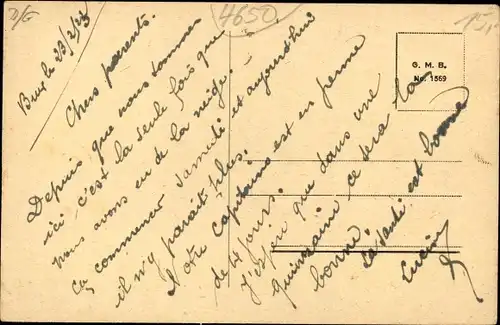 D/G
4650
15,-
G. M. B.
No. 1569
Brux le 23/2/24
Chers parents.
Depuis que nous sommes
ici c'est la seule fois que
nous avons eu de la neige.
Ça commence samedi et aujourd'hui
il n'y paraît plus.
Notre Capitaine est en perme
de 4 jours.
J'espère que dans une
quinzaine ce sera la
bonne.
La santé est bonne
Lucien